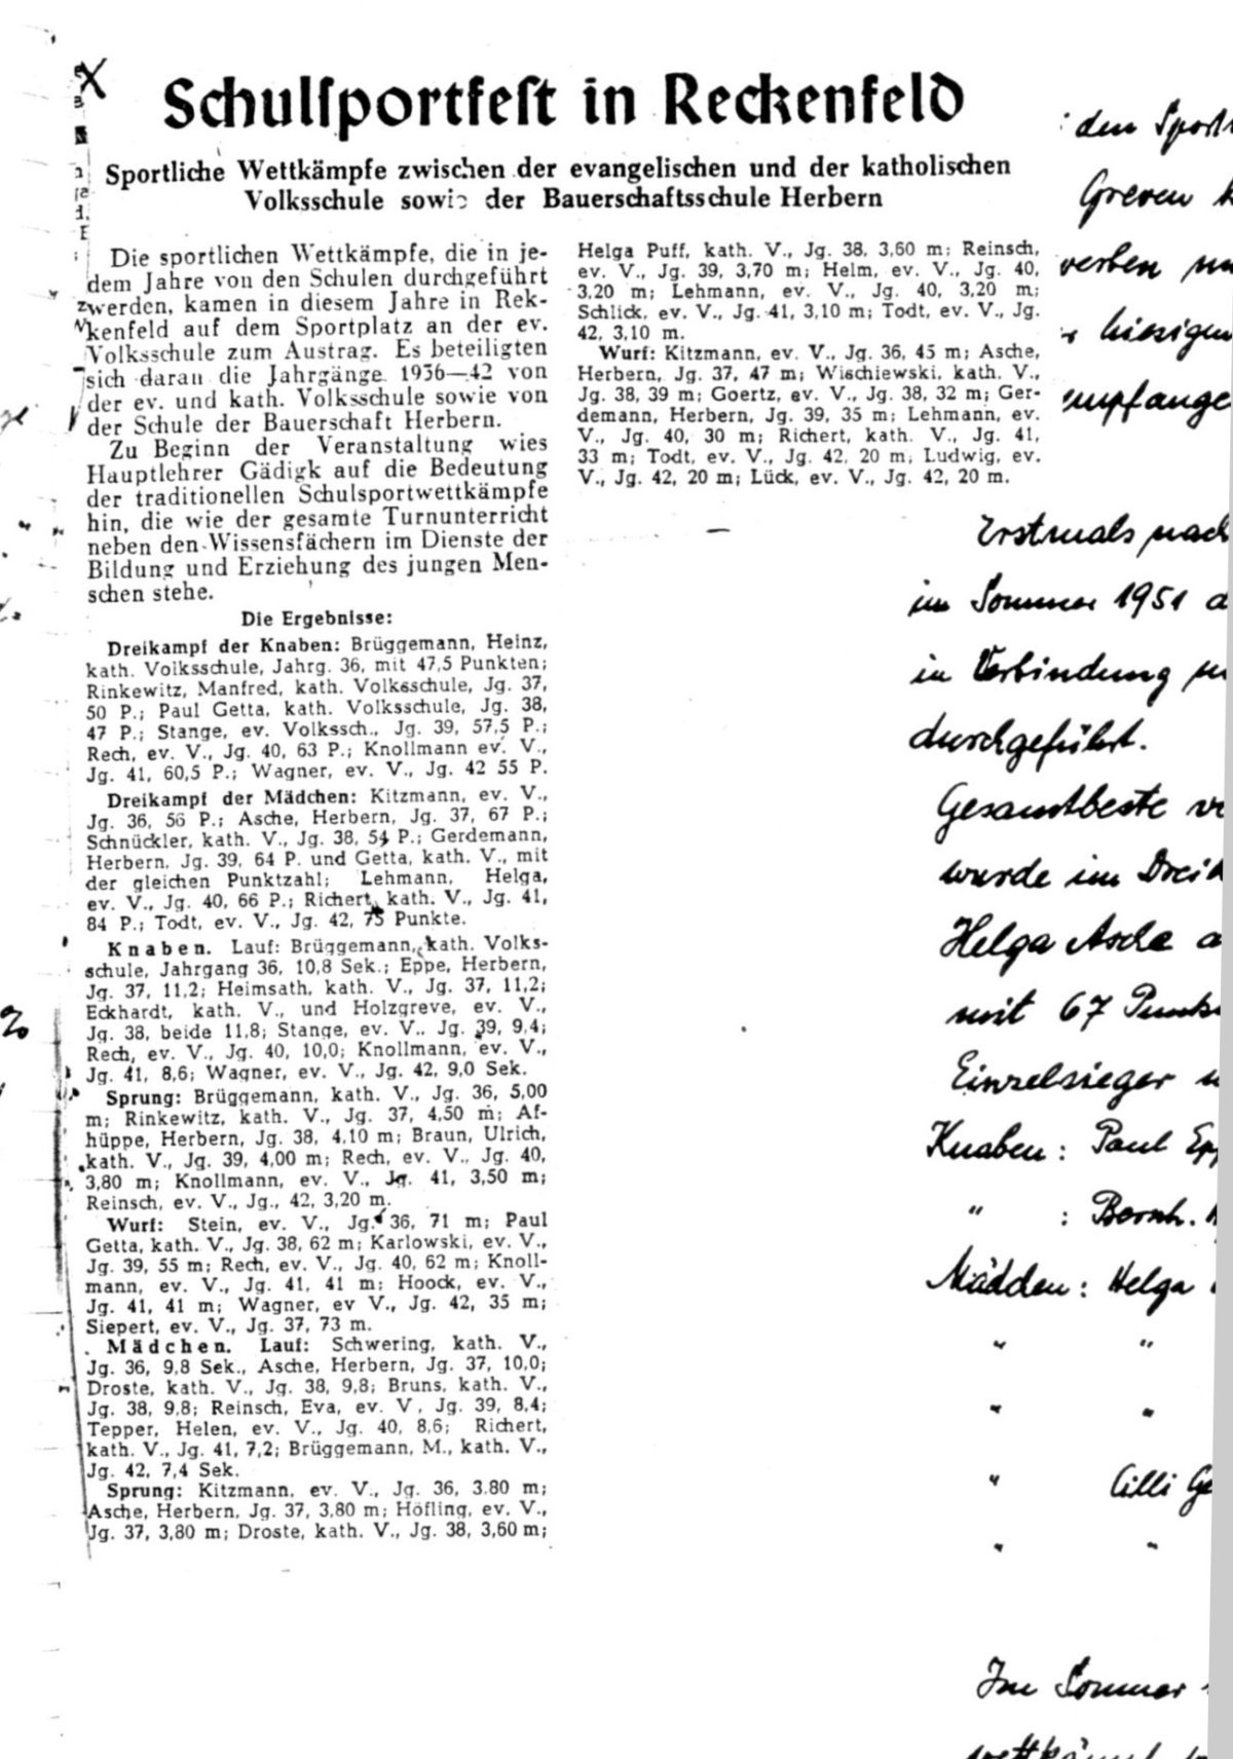 Schulsportfest in Reckenfeld
Sportliche Wettkämpfe zwischen der evangelischen und der katholischen
Volksschule sowie der Bauerschaftsschule Herbern
Die sportlichen Wettkämpfe, die in je-
dem Jahre von den Schulen durchgeführt
werden, kamen in diesem Jahre in Rek-
kenfeld auf dem Sportplatz an der ev.
Volksschule zum Austrag. Es beteiligten
sich daran die Jahrgänge 1936—42 von
der ev. und kath. Volksschule sowie von
der Schule der Bauerschaft Herbern.
Zu Beginn der Veranstaltung wies
Hauptlehrer Gädigk auf die Bedeutung
der traditionellen Schulsportwettkämpfe
hin, die wie der gesamte Turnunterricht
neben den Wissensfächern im Dienste der
Bildung und Erziehung des jungen Men-
schen stehe.
Die Ergebnisse:
Dreikampf der Knaben: Brüggemann, Heinz,
kath. Volksschule, Jahrg. 36, mit 47,5 Punkten;
Rinkewitz, Manfred, kath. Volksschule, Jg. 37,
50 P.; Paul Getta, kath. Volksschule, Jg. 38,
47 P.; Stange, ev. Volkssch., Jg. 39, 57,5 P.;
Rech, ev. V., Jg. 40, 63 P.; Knollmann ev. V.,
Jg. 41, 60,5 P.; Wagner, ev. V., Jg. 42 55 P.
Dreikampf der Mädchen: Kitzmann, ev. V.,
Jg. 36, 56 P.; Asche, Herbern, Jg. 37, 67 P.;
Schnückler, kath. V., Jg. 38, 54 P.; Gerdemann,
Herbern, Jg. 39, 64 P. und Getta, kath. V., mit
der gleichen Punktzahl; Lehmann, Helga,
ev. V., Jg. 40, 66 P.; Richert, kath. V., Jg. 41,
84 P.; Todt, ev. V., Jg. 42, 75 Punkte.
Knaben. Lauf: Brüggemann, kath. Volks-
schule, Jahrgang 36, 10,8 Sek.; Eppe, Herbern,
Jg. 37, 11,2; Heimsath, kath. V., Jg. 37, 11,2;
Eckhardt, kath. V., und Holzgreve, ev. V.,
Jg. 38, beide 11,8; Stange, ev. V.. Jg. 39, 9,4;
Rech, ev. V., Jg. 40, 10,0; Knollmann, ev. V.,
Jg. 41, 8,6; Wagner, ev. V., Jg. 42, 9,0 Sek.
Sprung: Brüggemann, kath. V., Jg. 36, 5,00
m; Rinkewitz, kath. V., Jg. 37, 4,50 m; Af-
hüppe, Herbern, Jg. 38, 4,10 m; Braun, Ulrich,
kath. V., Jg. 39, 4,00 m; Rech, ev. V., Jg. 40,
3,80 m; Knollmann, ev. V., Jg. 41, 3,50 m;
Reinsch, ev. V., Jg., 42, 3,20 m.
Wurf: Stein, ev. V., Jg. 36, 71 m; Paul
Getta, kath. V., Jg. 38, 62 m; Karlowski, ev. V.,
Jg. 39, 55 m; Rech, ev. V., Jg. 40, 62 m; Knoll-
mann, ev. V., Jg. 41, 41 m; Hoock, ev. V.,
Jg. 41, 41 m; Wagner, ev V., Jg. 42, 35 m;
Siepert, ev. V., Jg. 37, 73 m.
Mädchen. Lauf: Schwering, kath. V.,
Jg. 36, 9,8 Sek., Asche, Herbern, Jg. 37, 10,0;
Droste, kath. V., Jg. 38, 9,8; Bruns, kath. V.,
Jg. 38, 9,8; Reinsch, Eva, ev. V, Jg. 39, 8,4;
Tepper, Helen, ev. V., Jg. 40, 8,6; Richert,
kath. V., Jg. 41, 7,2; Brüggemann, M., kath. V.,
Jg. 42, 7,4 Sek.
Sprung: Kitzmann, ev. V., Jg. 36, 3.80 m;
Asche, Herbern, Jg. 37, 3,80 m; Höfling, ev. V.,
Jg. 37, 3,80 m; Droste, kath. V., Jg. 38, 3,60 m;
Helga Puff, kath. V., Jg. 38, 3,60 m; Reinsch,
ev. V., Jg. 39, 3,70 m; Helm, ev. V., Jg. 40,
3,20 m; Lehmann, ev. V., Jg. 40, 3,20 m;
Schlick, ev. V., Jg. 41, 3,10 m; Todt, ev. V., Jg.
42, 3,10 m.
Wurf: Kitzmann, ev. V., Jg. 36, 45 m; Asche,
Herbern, Jg. 37, 47 m; Wischiewski, kath. V.,
Jg. 38, 39 m; Goertz, ev. V., Jg. 38, 32 m; Ger-
demann, Herbern, Jg. 39, 35 m; Lehmann, ev.
V., Jg. 40, 30 m; Richert, kath. V., Jg. 41,
33 m; Todt, ev. V., Jg. 42, 20 m, Ludwig, ev.
V., Jg. 42, 20 m; Lück, ev. V., Jg. 42, 20 m.
den Sport
Greven
werben
hiesigen
empfange
Erstmals nach
im Sommer 1951
in Verbindung
durchgeführt.
Gesamtbeste
wurde im Dreik
Helga Asche
mit 67 Punk
Einzelsieger
Knaben: Paul Epp
" : Bernh.
Mädchen: Helga
" "
" "
" Cilli Ge
" "
Im Sommer
wettkämpf